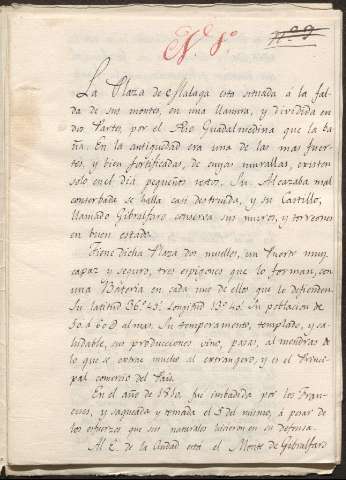 N.º 5.º
nº 9
La Plaza de Malaga esta situada à la fal-
da de sus montes, en una llanura, y dividida en
dos Partes, por el Rio Guadalmedina que la ba-
ña. En la antiguedad era una de las mas fuer-
tes, y bien fortificadas, de cuyas murallas, existen
solo en el dia pequeños restos. Su Alcazaba mal
conserbada se halla casi destruida, y su Castillo,
llamado Gibralfaro conserva sus muros, y torreones
en buen estado.
Tiene dicha Plaza dos muelles, un Puerto muy
capaz y seguro, tres espigones que lo forman, con
una Bateria en cada uno de ellos que le defienden.
Su latitud 36º 43' Longitud 13º 40' Su poblacion de
50 á 60 @ almas. Su temperamento, templado, y sa-
ludable, sus producciones vino, pasas, almendras de
lo que se extrae mucho al extrangero, y es el Princi-
pal comercio del Pais.
En el año de 1810, fue imbadida por los Fran-
ceses, y saqueada y tomada el 5 del mismo, à pesar de
los esfuerzos que sus naturales hicieron en su defensa.
Al E. de la Ciudad está el Monte de Gibralfaro